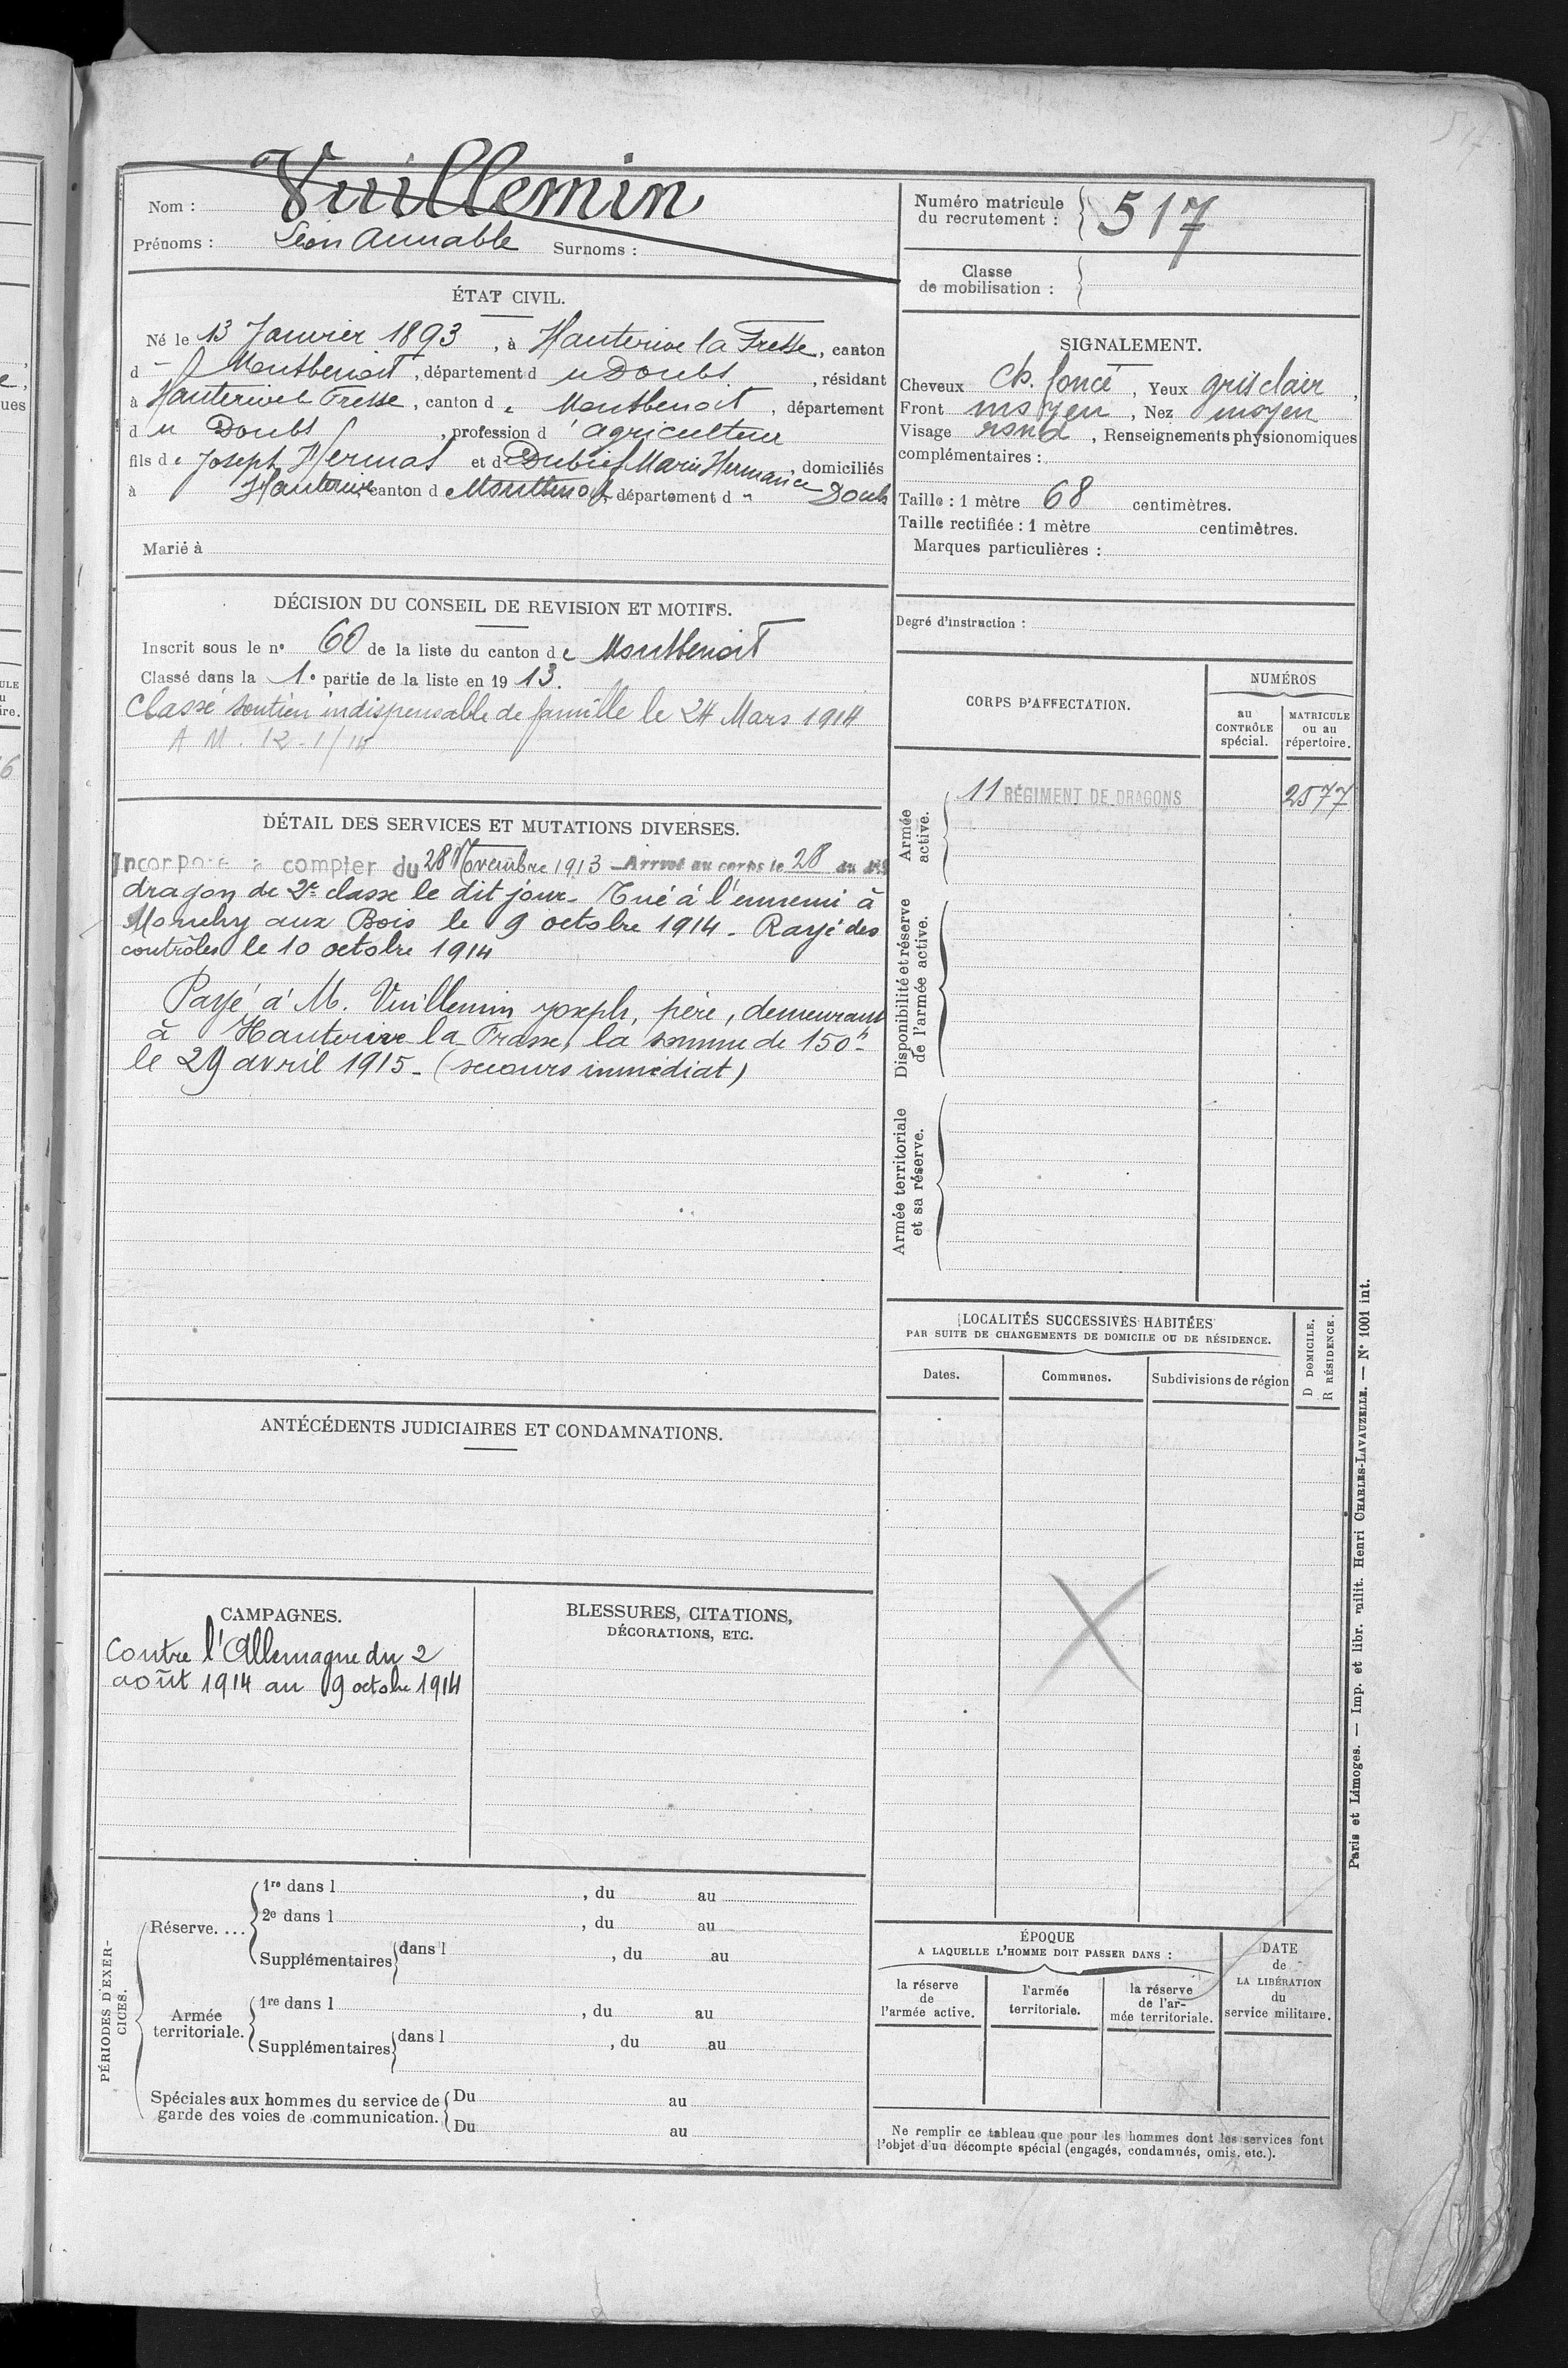 517
Nom : Vuillemin
Prénoms : Léon Aimable Surnoms :
Numéro matricule du recrutement : 517
Classe de mobilisation :
ÉTAT CIVIL.
Né le 13 Janvier 1893, à Hauterive la Fresse, canton
d Montbenoit, département du Doubs, résidant
à Hauterive l Fresse, canton de Montbenoit, département
du Doubs, profession d'agriculteur
fils de Joseph Hermas et d Dubief Marie Hermance, domiciliés
à Hauterive canton d Montbenoit, département d " Doubs
Marié à
SIGNALEMENT.
Cheveux Ch. foncé, Yeux gris clair,
Front moyen, Nez moyen
Visage rond, Renseignements physionomiques
complémentaires :
Taille : 1 mètre 68 centimètres.
Taille rectifiée : 1 mètre centimètres.
Marques particulières :
DÉCISION DU CONSEIL DE REVISION ET MOTIFS.
Inscrit sous le n° 60 de la liste du canton de Montbenoit
Classé dans la 1e partie de la liste en 1913.
Classé soutien indispensable de famille le 24 Mars 1914
A M. 12-1/14
Degré d'instruction :
CORPS D'AFFECTATION.
NUMÉROS
au CONTRÔLE spécial.
MATRICULE ou au répertoire.
Armée active.
11 RÉGIMENT DE DRAGONS 2577
Disponibilité et réserve de l'armée active.
Armée territoriale et sa réserve.
DÉTAIL DES SERVICES ET MUTATIONS DIVERSES.
Incorporé à compter du 28 Novembre 1913 - Arrivé au corps le 28 du dit
dragon de 2e classe le dit jour. Tué à l'ennemi à
Monchy aux Bois le 9 octobre 1914. Rayé des
contrôles le 10 octobre 1914
Payé à M. Vuillemin Joseph, père, demeurant
à Hauterive la Frasse, la somme de 150 f
le 29 avril 1915 - (secours immédiat)
LOCALITÉS SUCCESSIVES HABITÉES
PAR SUITE DE CHANGEMENTS DE DOMICILE OU DE RÉSIDENCE.
Dates.
Communes.
Subdivisions de région
D DOMICILE.
R RÉSIDENCE.
ANTÉCÉDENTS JUDICIAIRES ET CONDAMNATIONS.
CAMPAGNES.
Contre l'Allemagne du 2
août 1914 au 9 octobre 1914
BLESSURES, CITATIONS,
DÉCORATIONS, ETC.
PÉRIODES D'EXERCICES.
Réserve....
1re dans l , du au
2e dans l , du au
Supplémentaires dans l , du au
Armée territoriale.
1re dans l , du au
Supplémentaires dans l , du au
Spéciales aux hommes du service de garde des voies de communication.
Du au
Du au
ÉPOQUE
A LAQUELLE L'HOMME DOIT PASSER DANS :
la réserve de l'armée active.
l'armée territoriale.
la réserve de l'armée territoriale.
DATE de LA LIBÉRATION du service militaire.
Ne remplir ce tableau que pour les hommes dont les services font
l'objet d'un décompte spécial (engagés, condamnés, omis, etc.).
Paris et Limoges. — Imp. et libr. milit. Henri CHARLES-LAVAUZELLE. — N° 1001 int.